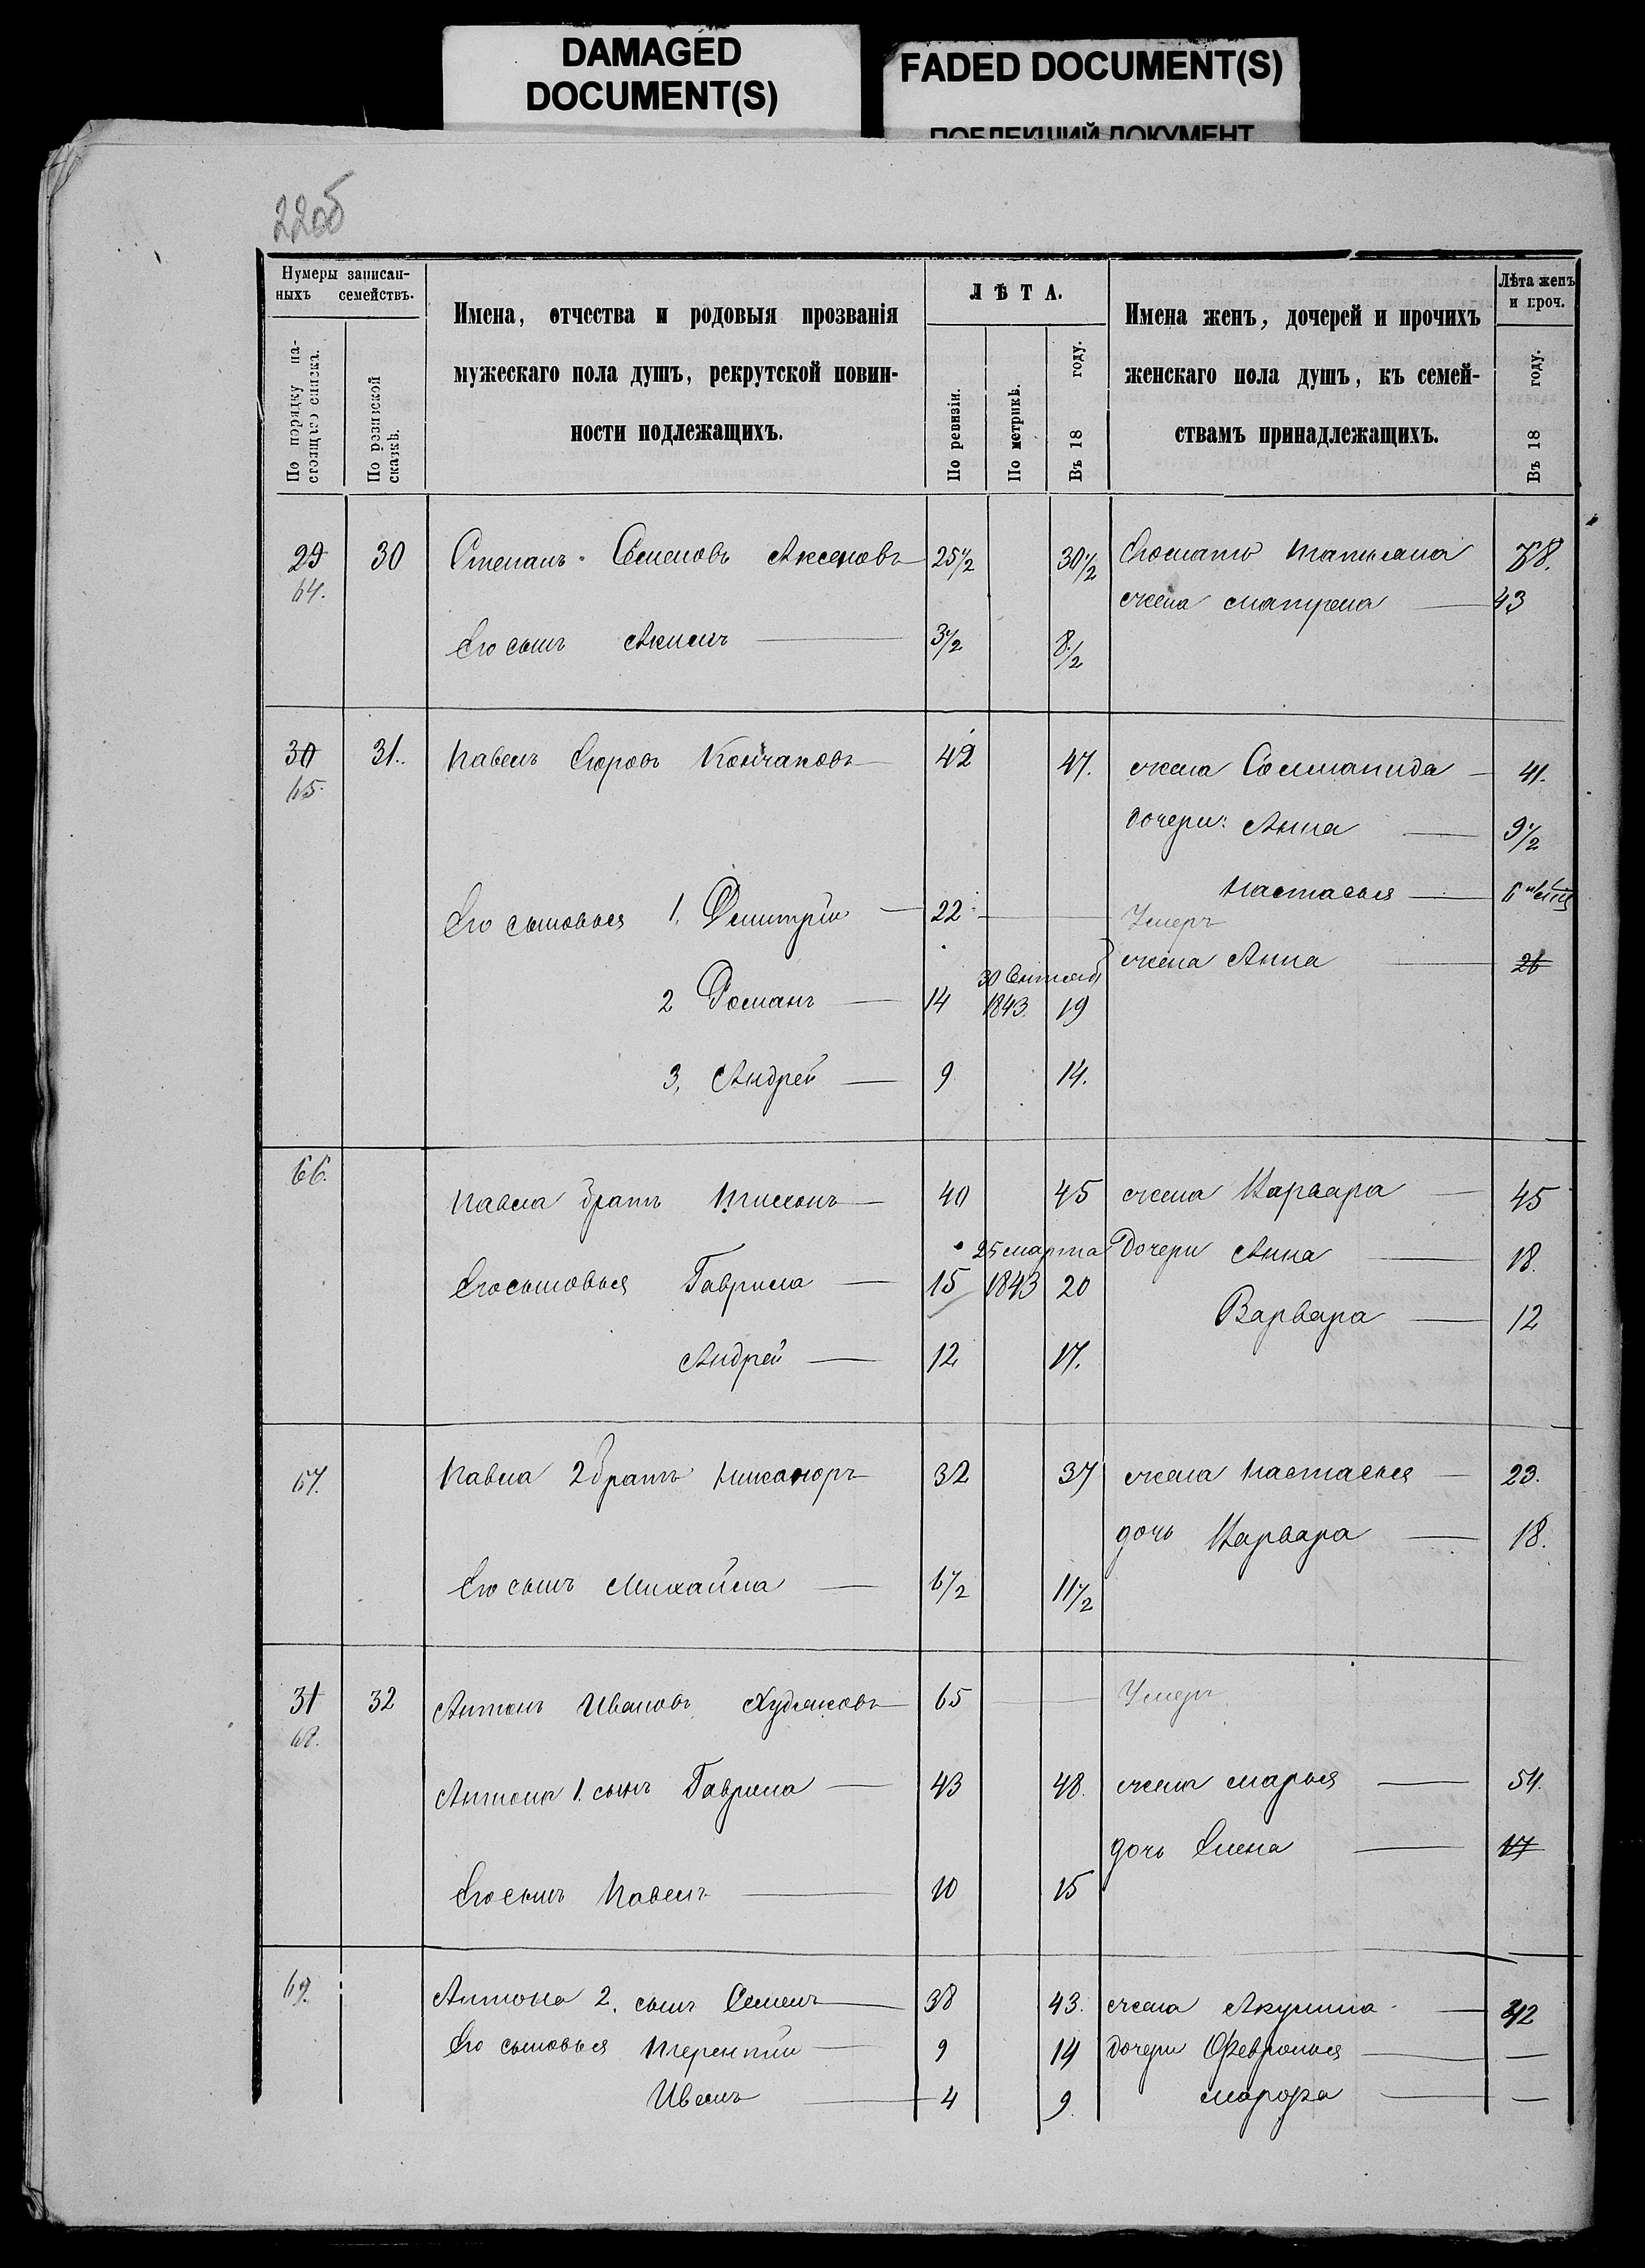 DAMAGED
DOCUMENT(S)
FADED DOCUMENT(S)
ПОБЛЕКШИЙ ДОКУМЕНТ
22об
Нумеры записан-
ныхъ семействъ.
По порядку на-
стоящаго списка.
По ревизской
сказкѣ.
Имена, отчества и родовыя прозванія
мужескаго пола душъ, рекрутской повин-
ности подлежащихъ.
ЛѢТА.
По ревизіи.
По метрикѣ.
Въ 18 году.
Имена женъ, дочерей и прочихъ
женскаго пола душъ, къ семей-
ствамъ принадлежащихъ.
Лѣта женъ
и проч.
Въ 18 году.
29 30 Степанъ Семеновъ Аксеновъ 25½ 30½ Егомать Татьяна 78.
64. жена Матрена 43
Его сынъ Акимъ 3½ 8½
30 31. Павелъ Егоровъ Кончаковъ 42 47. жена Соломанида 41.
65. дочери: Анна 9½
Настасья
Его сыновья 1. Дмитрій 22 Умеръ
жена Анна 26
30 Сентяб
2 Романъ 14 1843. 19
3, Андрей 9 14.
66. Павла братъ Тихонъ 40 45 жена Варвара 45
25 марта Дочери Анна 18.
Егосыновья Гаврила 15 1843 20
Варвара 12
Андрей 12 17.
67. Павла 2 братъ Никаноръ 32 37 жена Настасья 23.
дочь Варвара 18.
Его сынъ Михайла 6½ 11½
31 32 Антонъ Ивановъ Худяковъ 65 Умеръ
68.
Антона 1. сынъ Гаврила 43 48. жена Марья 54.
дочь Елена 17
Егосынъ Павелъ 10 15
69. Антона 2. сынъ Семенъ 38 43. жена Акулина 42
Его сыновья Терентій 9 14 дочери Февронья —
Ивanъ 4 9. Марфа —